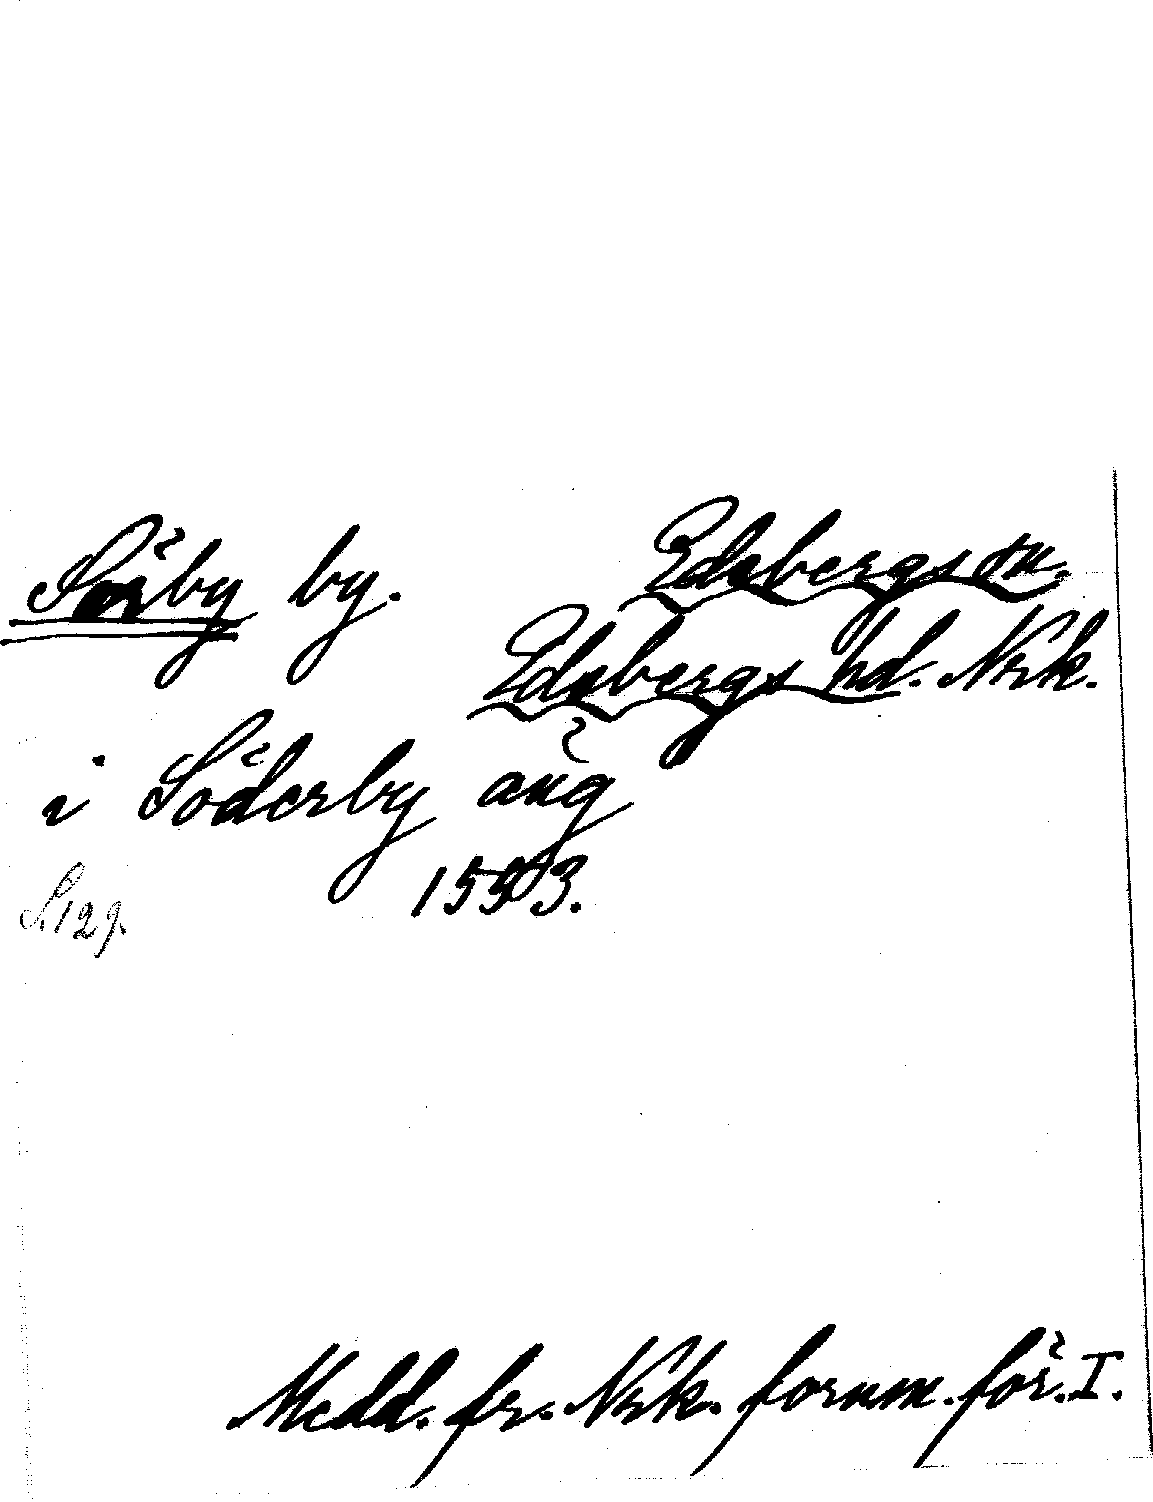 Sörby by. Edsbergs sn.
Edsbergs hd. Nrk.
i Söderby aug
1553.
S. 129.
Medd. fr. Nrk. fornm. för. I.